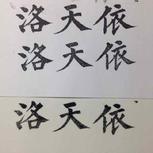 洛天依
洛天依
洛天依